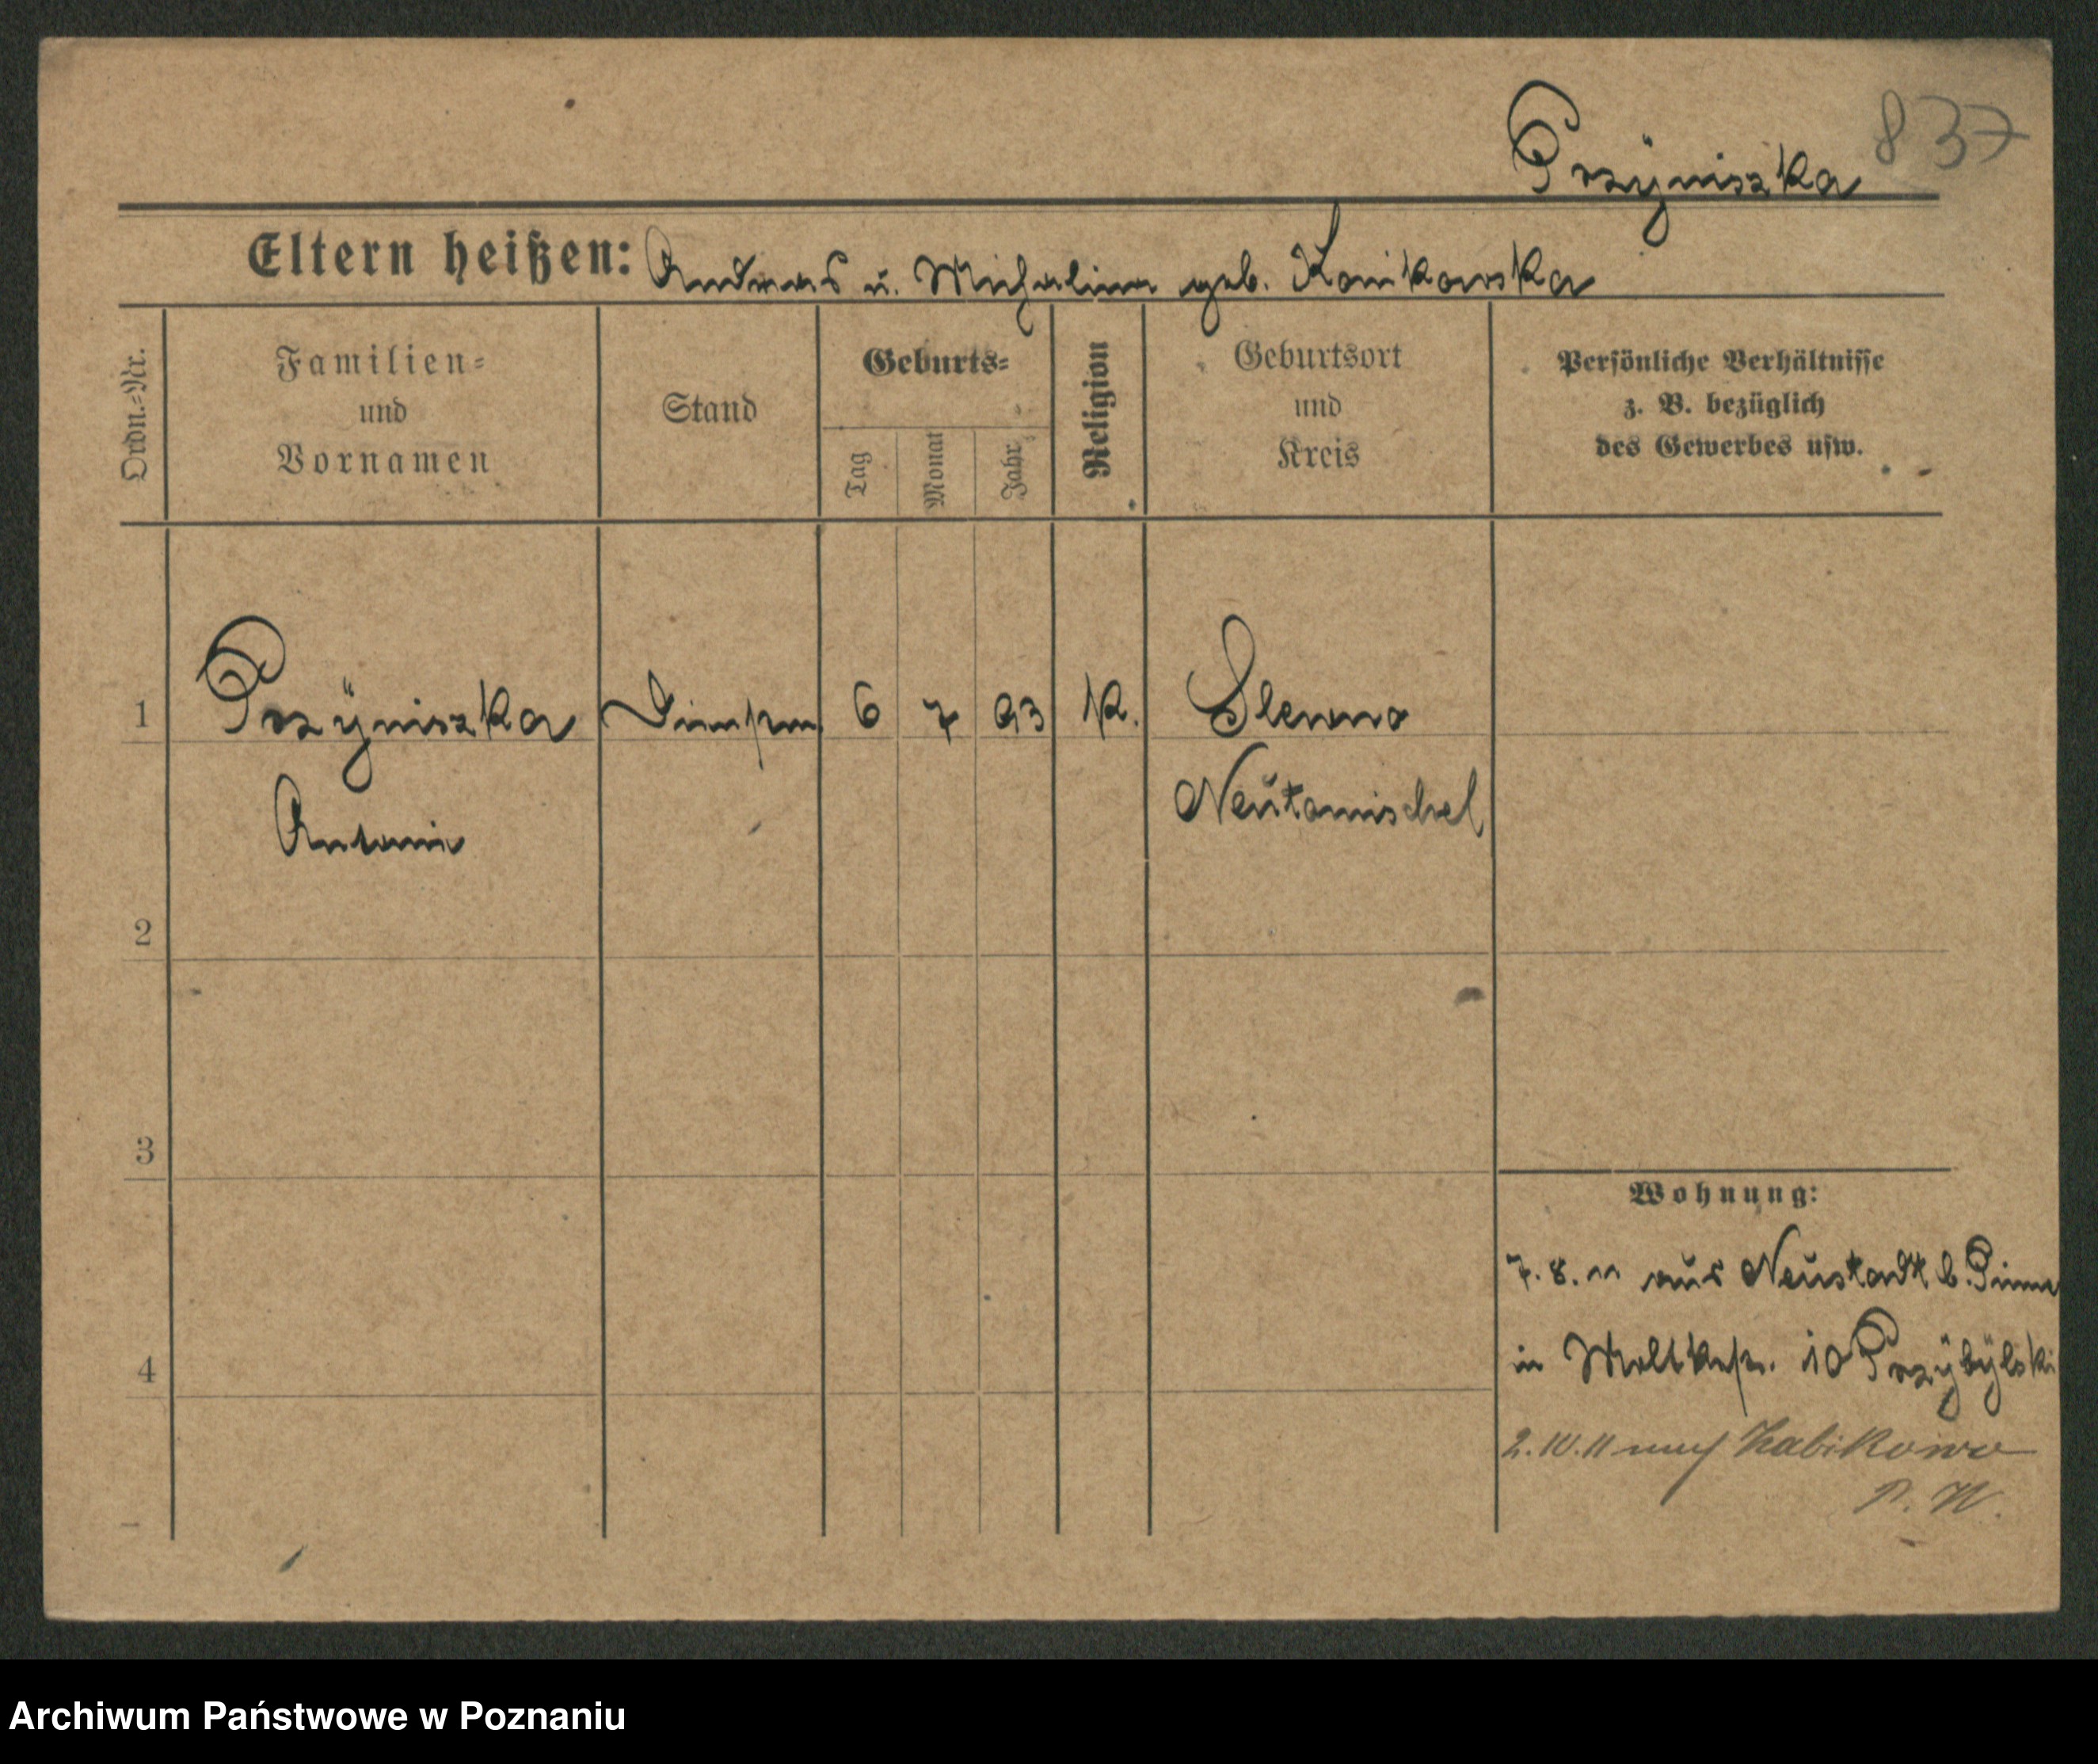 837
Pozÿniszka
Eltern heißen: Andreas u. Michalina geb. Konikowska
Ordn.=Nr.
Familien=
und
Vornamen
Stand
Geburts=
Tag
Monat
Jahr
Religion
Geburtsort
und
Kreis
Persönliche Verhältnisse
z. B. bezüglich
des Gewerbes usw.
1 Pozÿniszka 6 7 93 K.
Antonie Neutomischel
2
3
4
Wohnung:
7. 8. 11 aus Neustadt b. Pinne
in Moltkestr. 10 Przÿbÿlski
2.10.11 nach Zabikowo
P. W.
Archiwum Państwowe w Poznaniu